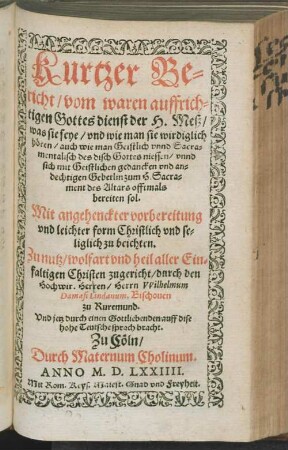 Kurtzer Be-
richt/ vom waren auffrich-
tigen Gottes dienst der H. Meß/
was sie seye/ vnd wie man sie wirdiglich
hören/ auch wie man Geistlich vnnd Sacra-
mentalisch des disch Gottes niessen/ vnnd
sich mit Geistlichen gedancken vnd an-
dechtigen Gebetlin zum H. Sacra-
ment des Altars offtmals
bereiten sol.
Mit angehenckter vorbereitung
vnd leichter form Christlich vnd se-
liglich zu beichten.
Zu nutz/ wolfart vnd heil aller Ein-
faltigen Christen zugericht/ durch den
Hochwir. Herren/ Herrn VVilhelmum
Damasi Lindanum, Bischouen
zu Ruremund.
Vnd jetz durch einen Gottliebenden auff dise
hohe Teutsche sprach bracht.
Zu Cöln/
Durch Maternum Cholinum.
ANNO M. D. LXXIIII.
Mit Rom. Keys. Maiest. Gnad vnd Freyheit.